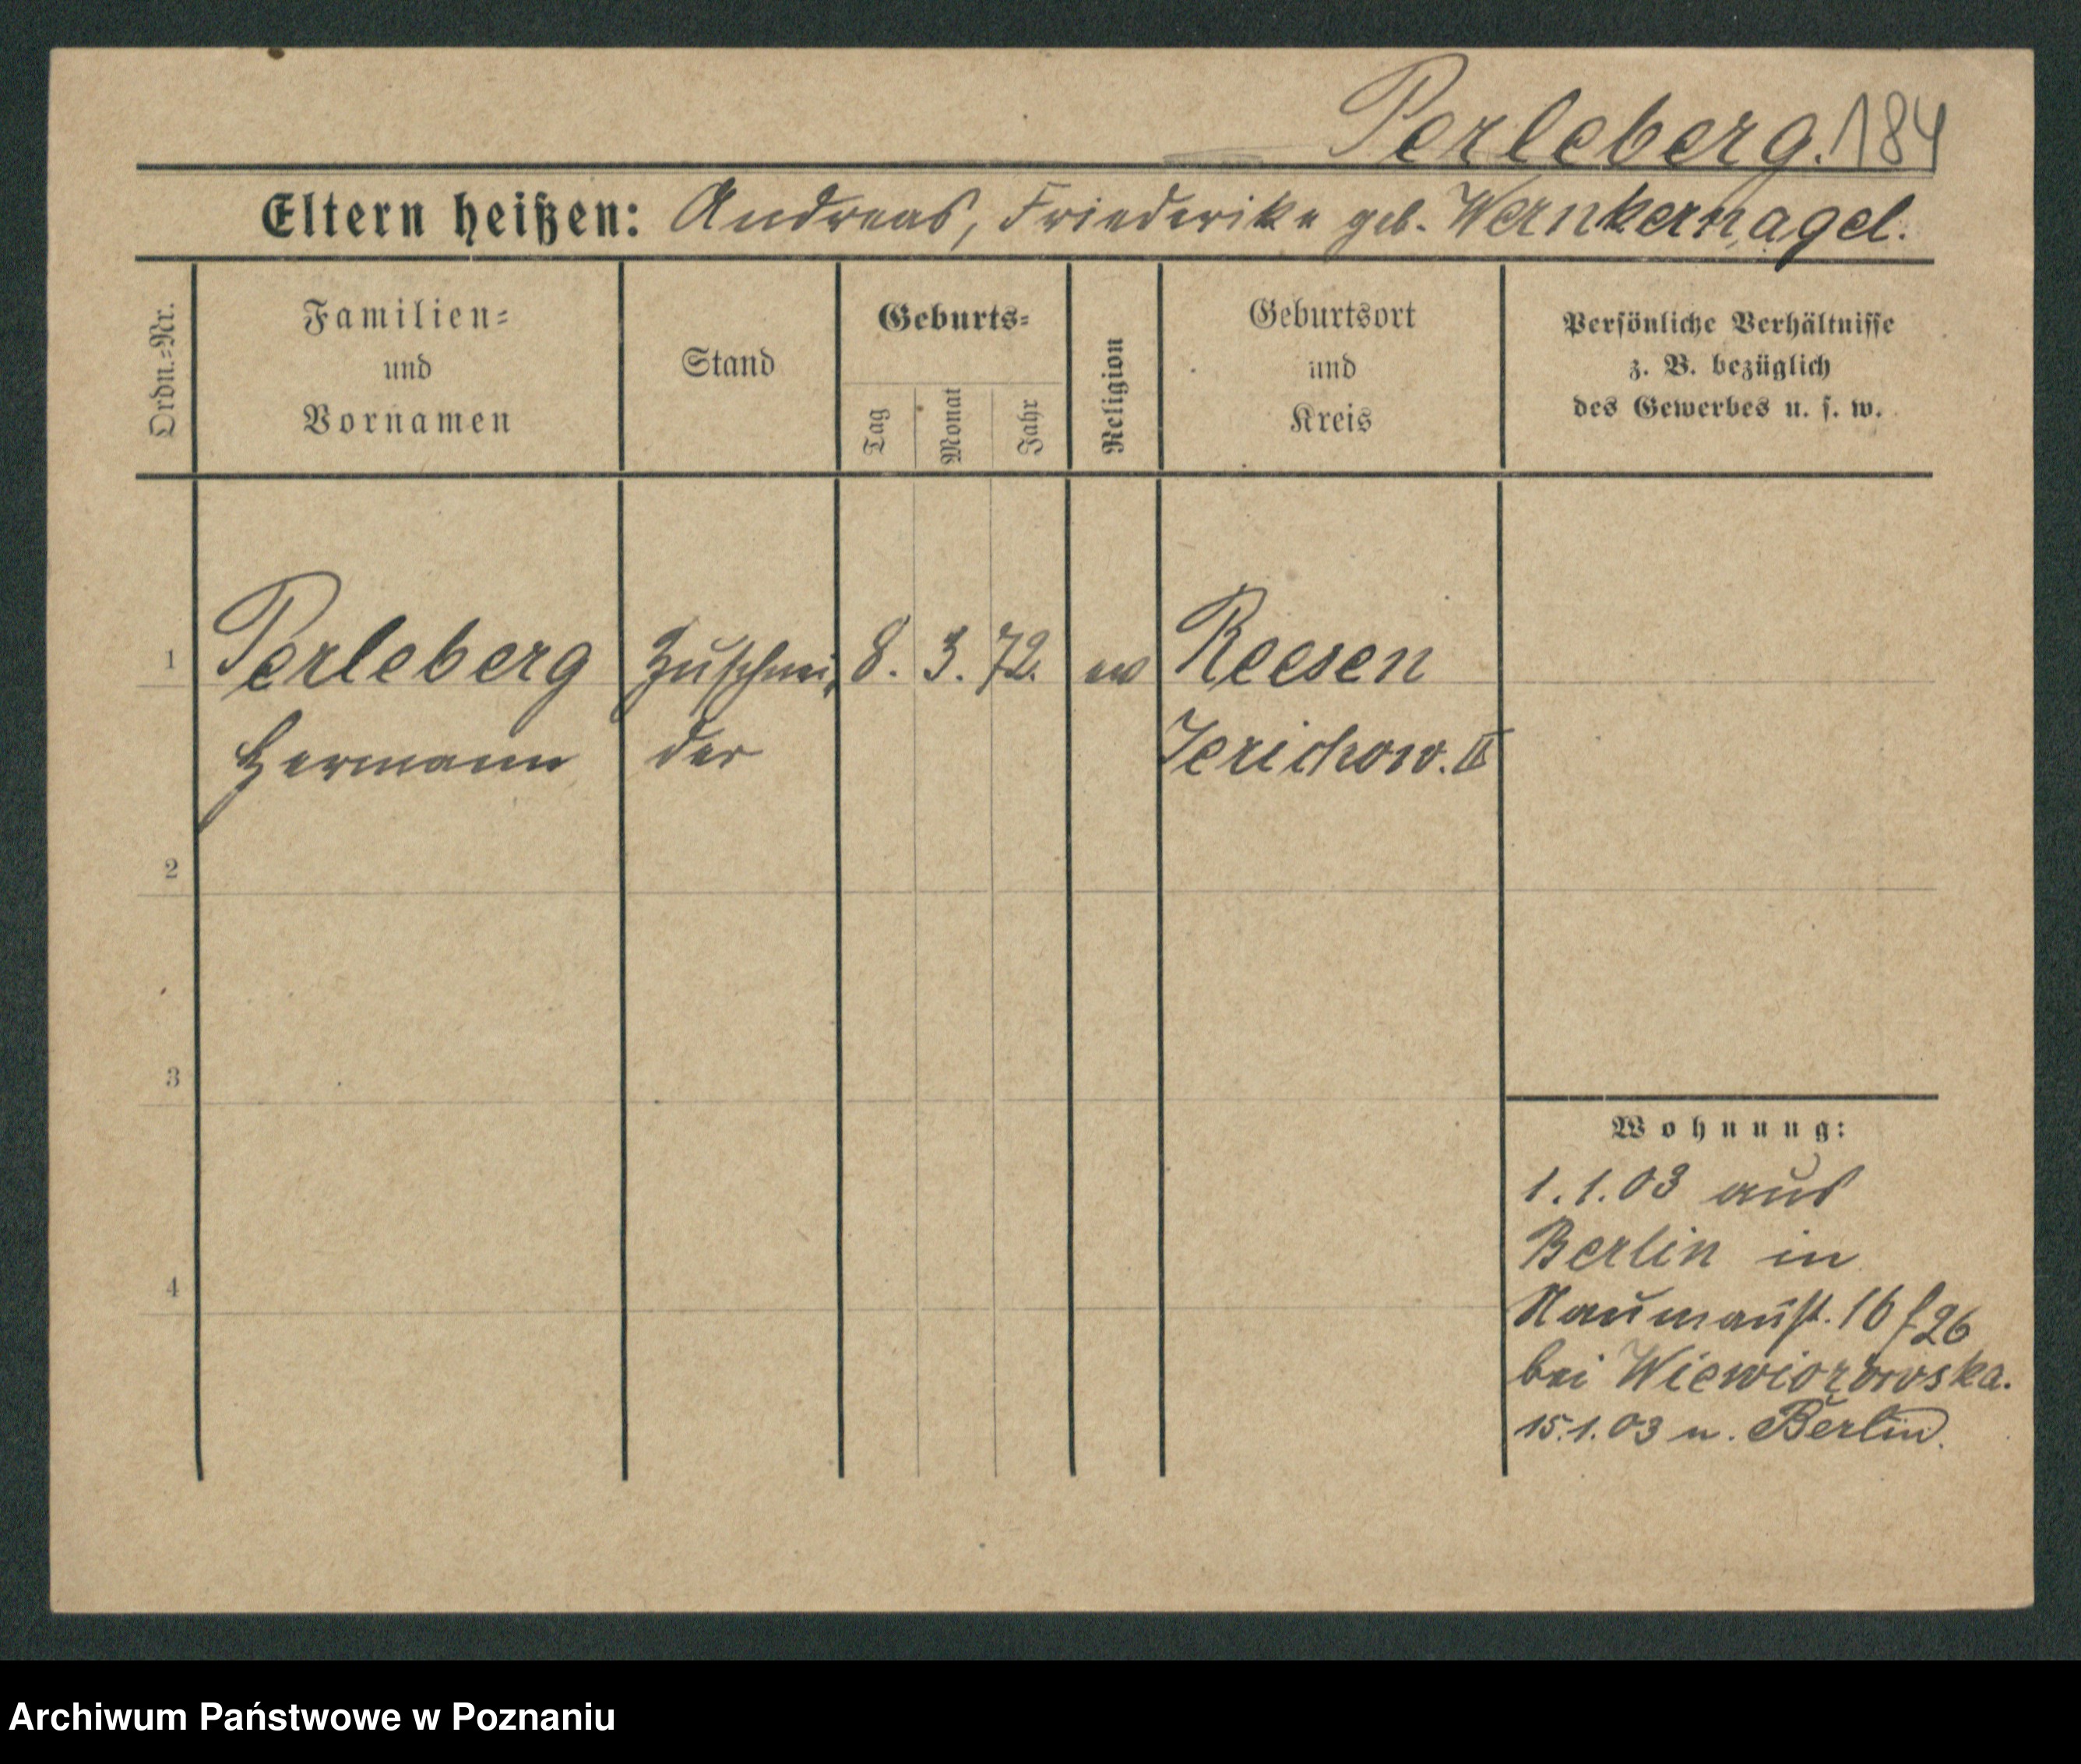 Perleberg. 184
Eltern heißen: Andreas, Friederike geb. Wernkernagel.
Ordn.=Nr.
Familien=
und
Vornamen
Stand
Geburts=
Tag
Monat
Jahr
Religion
Geburtsort
und
Kreis
Persönliche Verhältnisse
z. B. bezüglich
des Gewerbes u. s. w.
1 Perleberg Zuschnei, 8. 3. 72. ev Reesen
Hermann der Jerichow. II
2
3
4
Wohnung:
1.1.03 aus
Berlin in
Naumanst. 16 f26
bei Wiewiorowska.
15.1.03 n. Berlin.
Archiwum Państwowe w Poznaniu